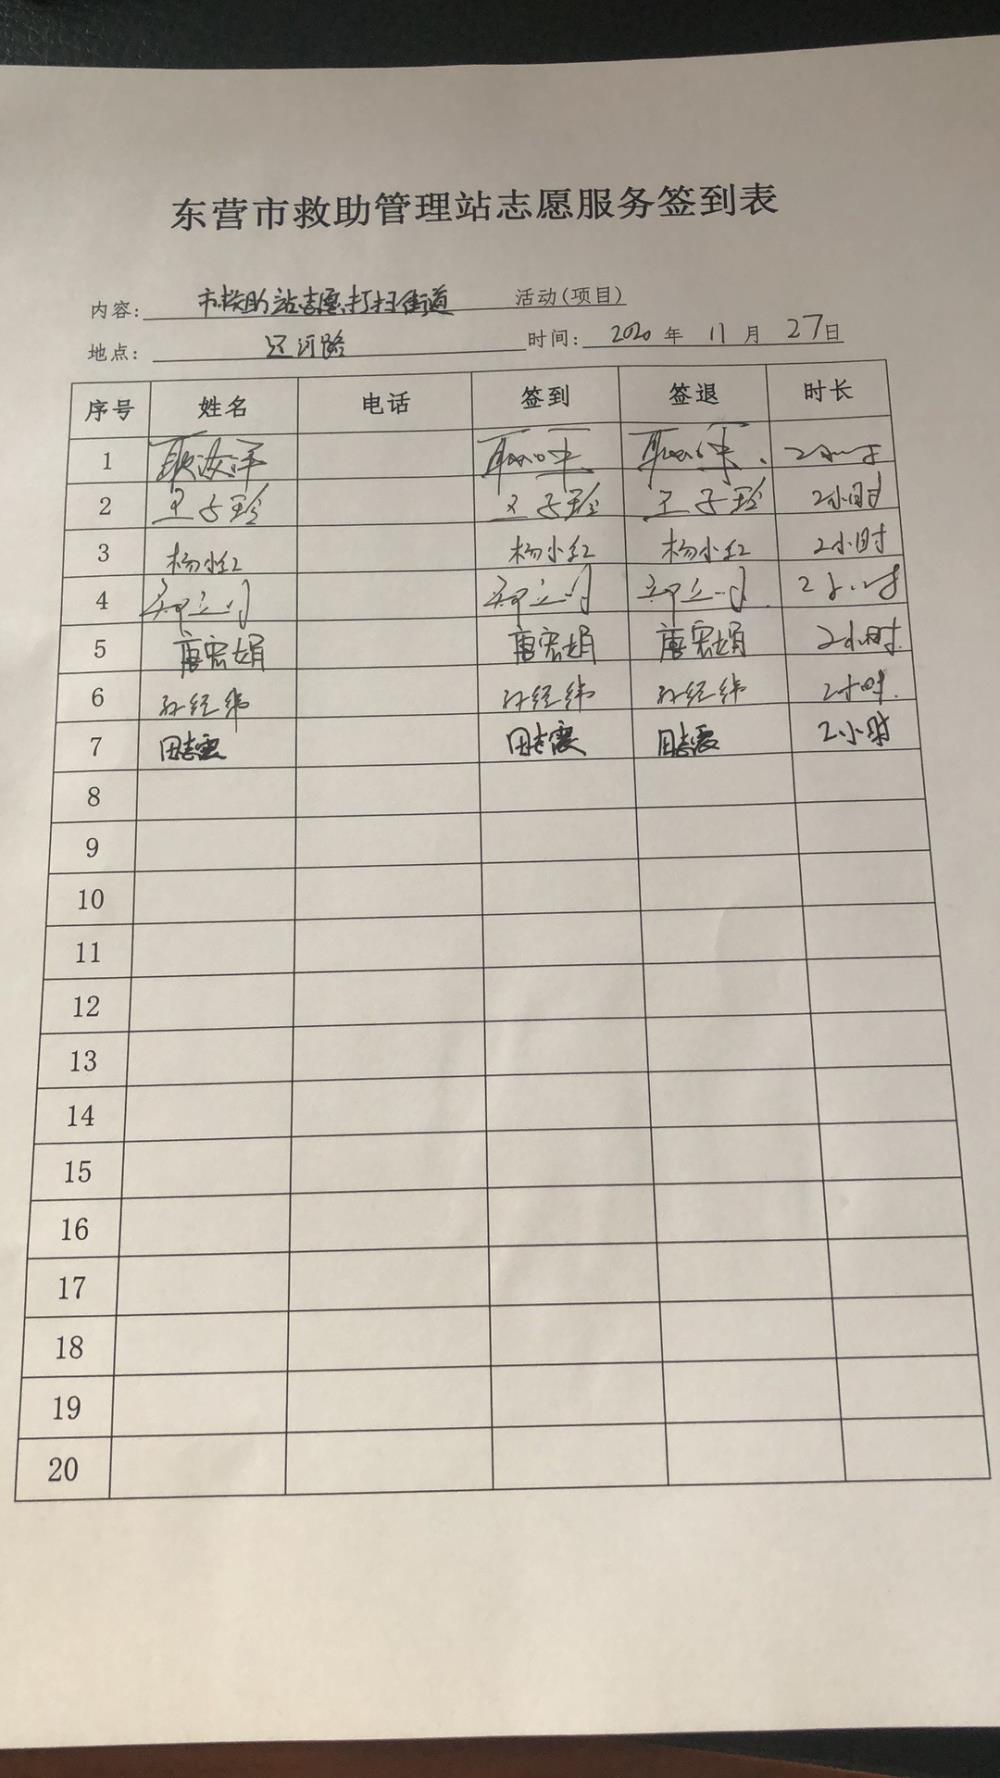 东营市救助管理站志愿服务签到表
内容: 市救助站志愿打扫街道 活动(项目)
地点: 运河路 时间: 2020 年 11 月 27 日
序号 姓名 电话 签到 签退 时长
1 2小时
2 王子玲 王子玲 王子玲 2小时
3 杨小红 杨小红 杨小红 2小时
4 2小时
5 唐宏娟 唐宏娟 唐宏娟 2小时
6 孙经纬 孙经纬 孙经纬 2小时.
7 田志霞 田志霞 田志霞 2小时
8
9
10
11
12
13
14
15
16
17
18
19
20